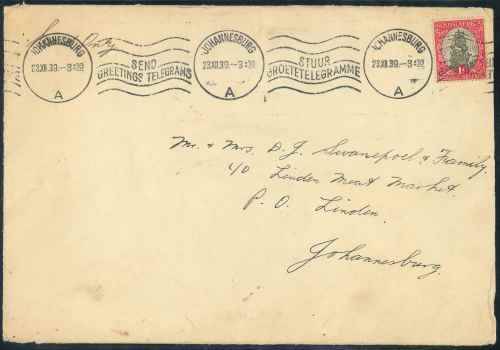 JOHANNESBURG
23.XII.39.–3
A
SEND
GREETINGS TELEGRAMS
JOHANNESBURG
23.XII.39.–3
A
STUUR
GROETETELEGRAMME
JOHANNESBURG
23.XII.39.–3
A
SOUTH AFRICA
1
Only
Mr. & Mrs. D. J. Swanepoel & Family.
c/o Linden Meat Market.
P. O. Linden.
Johannesburg.